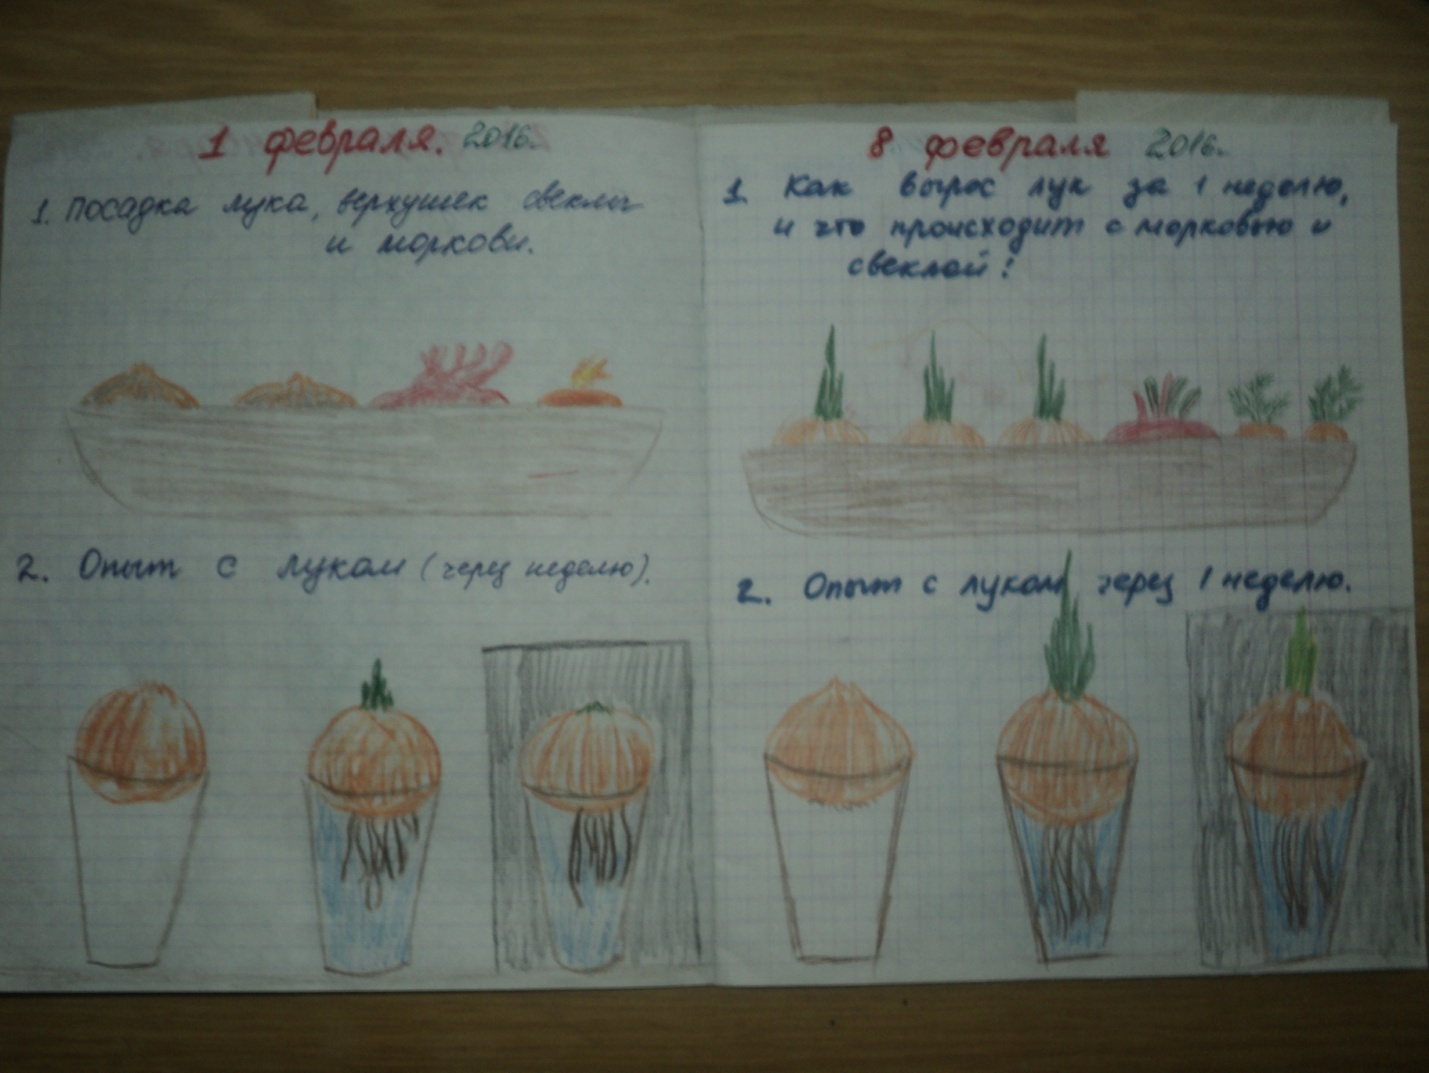 1 февраля. 2016.
1. Посадка лука, верхушек свеклы
и моркови.
2. Опыт с луком (через неделю).
8 февраля 2016.
1 Как вырос лук за 1 неделю,
и что происходит с морковью и
свеклой?
2. Опыт с луком через 1 неделю.